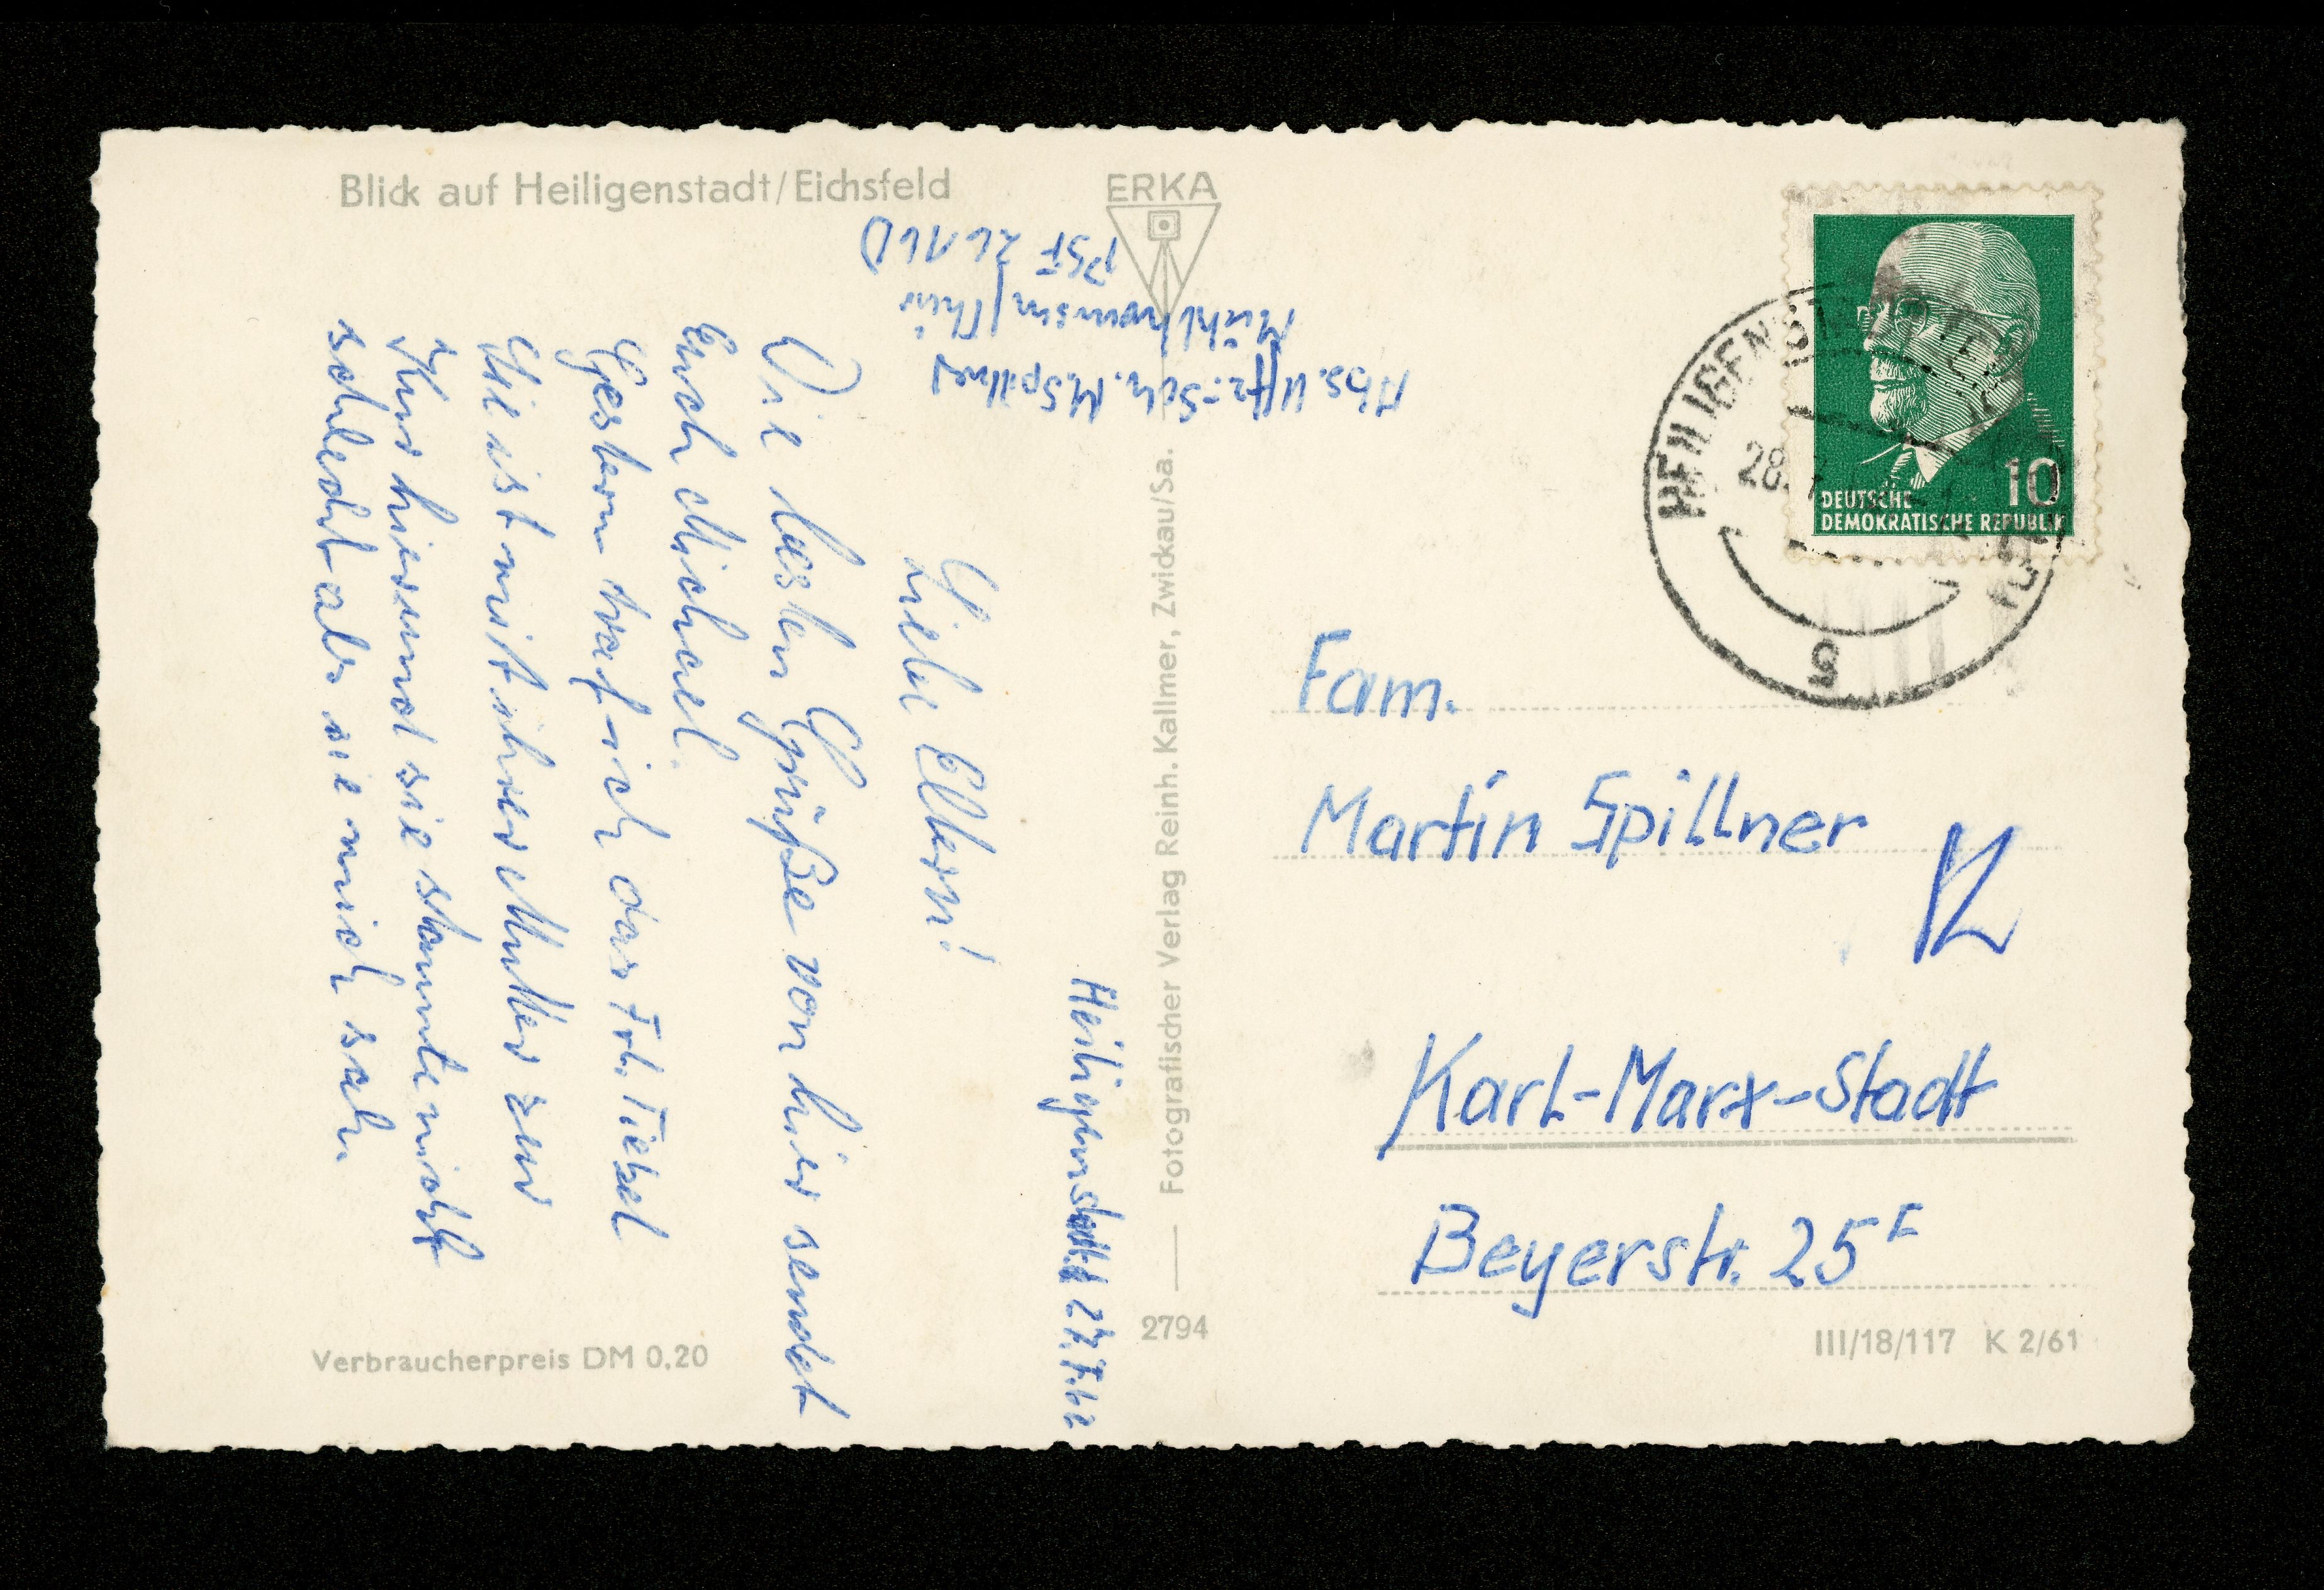 Blick auf Heiligenstadt/Eichsfeld
ERKA
Abs. Uffz.-Sch. M. Spillner
Mühlhausen/Thür
PSF 26 16 D
Heiligenstadt 27.7.62
Liebe Eltern!
Die besten Grüße von hier sendet
Euch Michael.
Gestern traf ich das Frl. Tietzel
Sie ist mit ihrer Mutter zur
Kur hier und sie staunte nicht
schlecht als sie mich sah.
Verbraucherpreis DM 0,20
Fotografischer Verlag Reinh. Kallmer, Zwickau/Sa.
2794
DEUTSCHE
DEMOKRATISCHE REPUBLIK
10
HEILIGENSTADT
28.
5
Fam.
Martin Spillner
Karl-Marx-Stadt
Beyerstr. 25 F
III/18/117 K 2/61